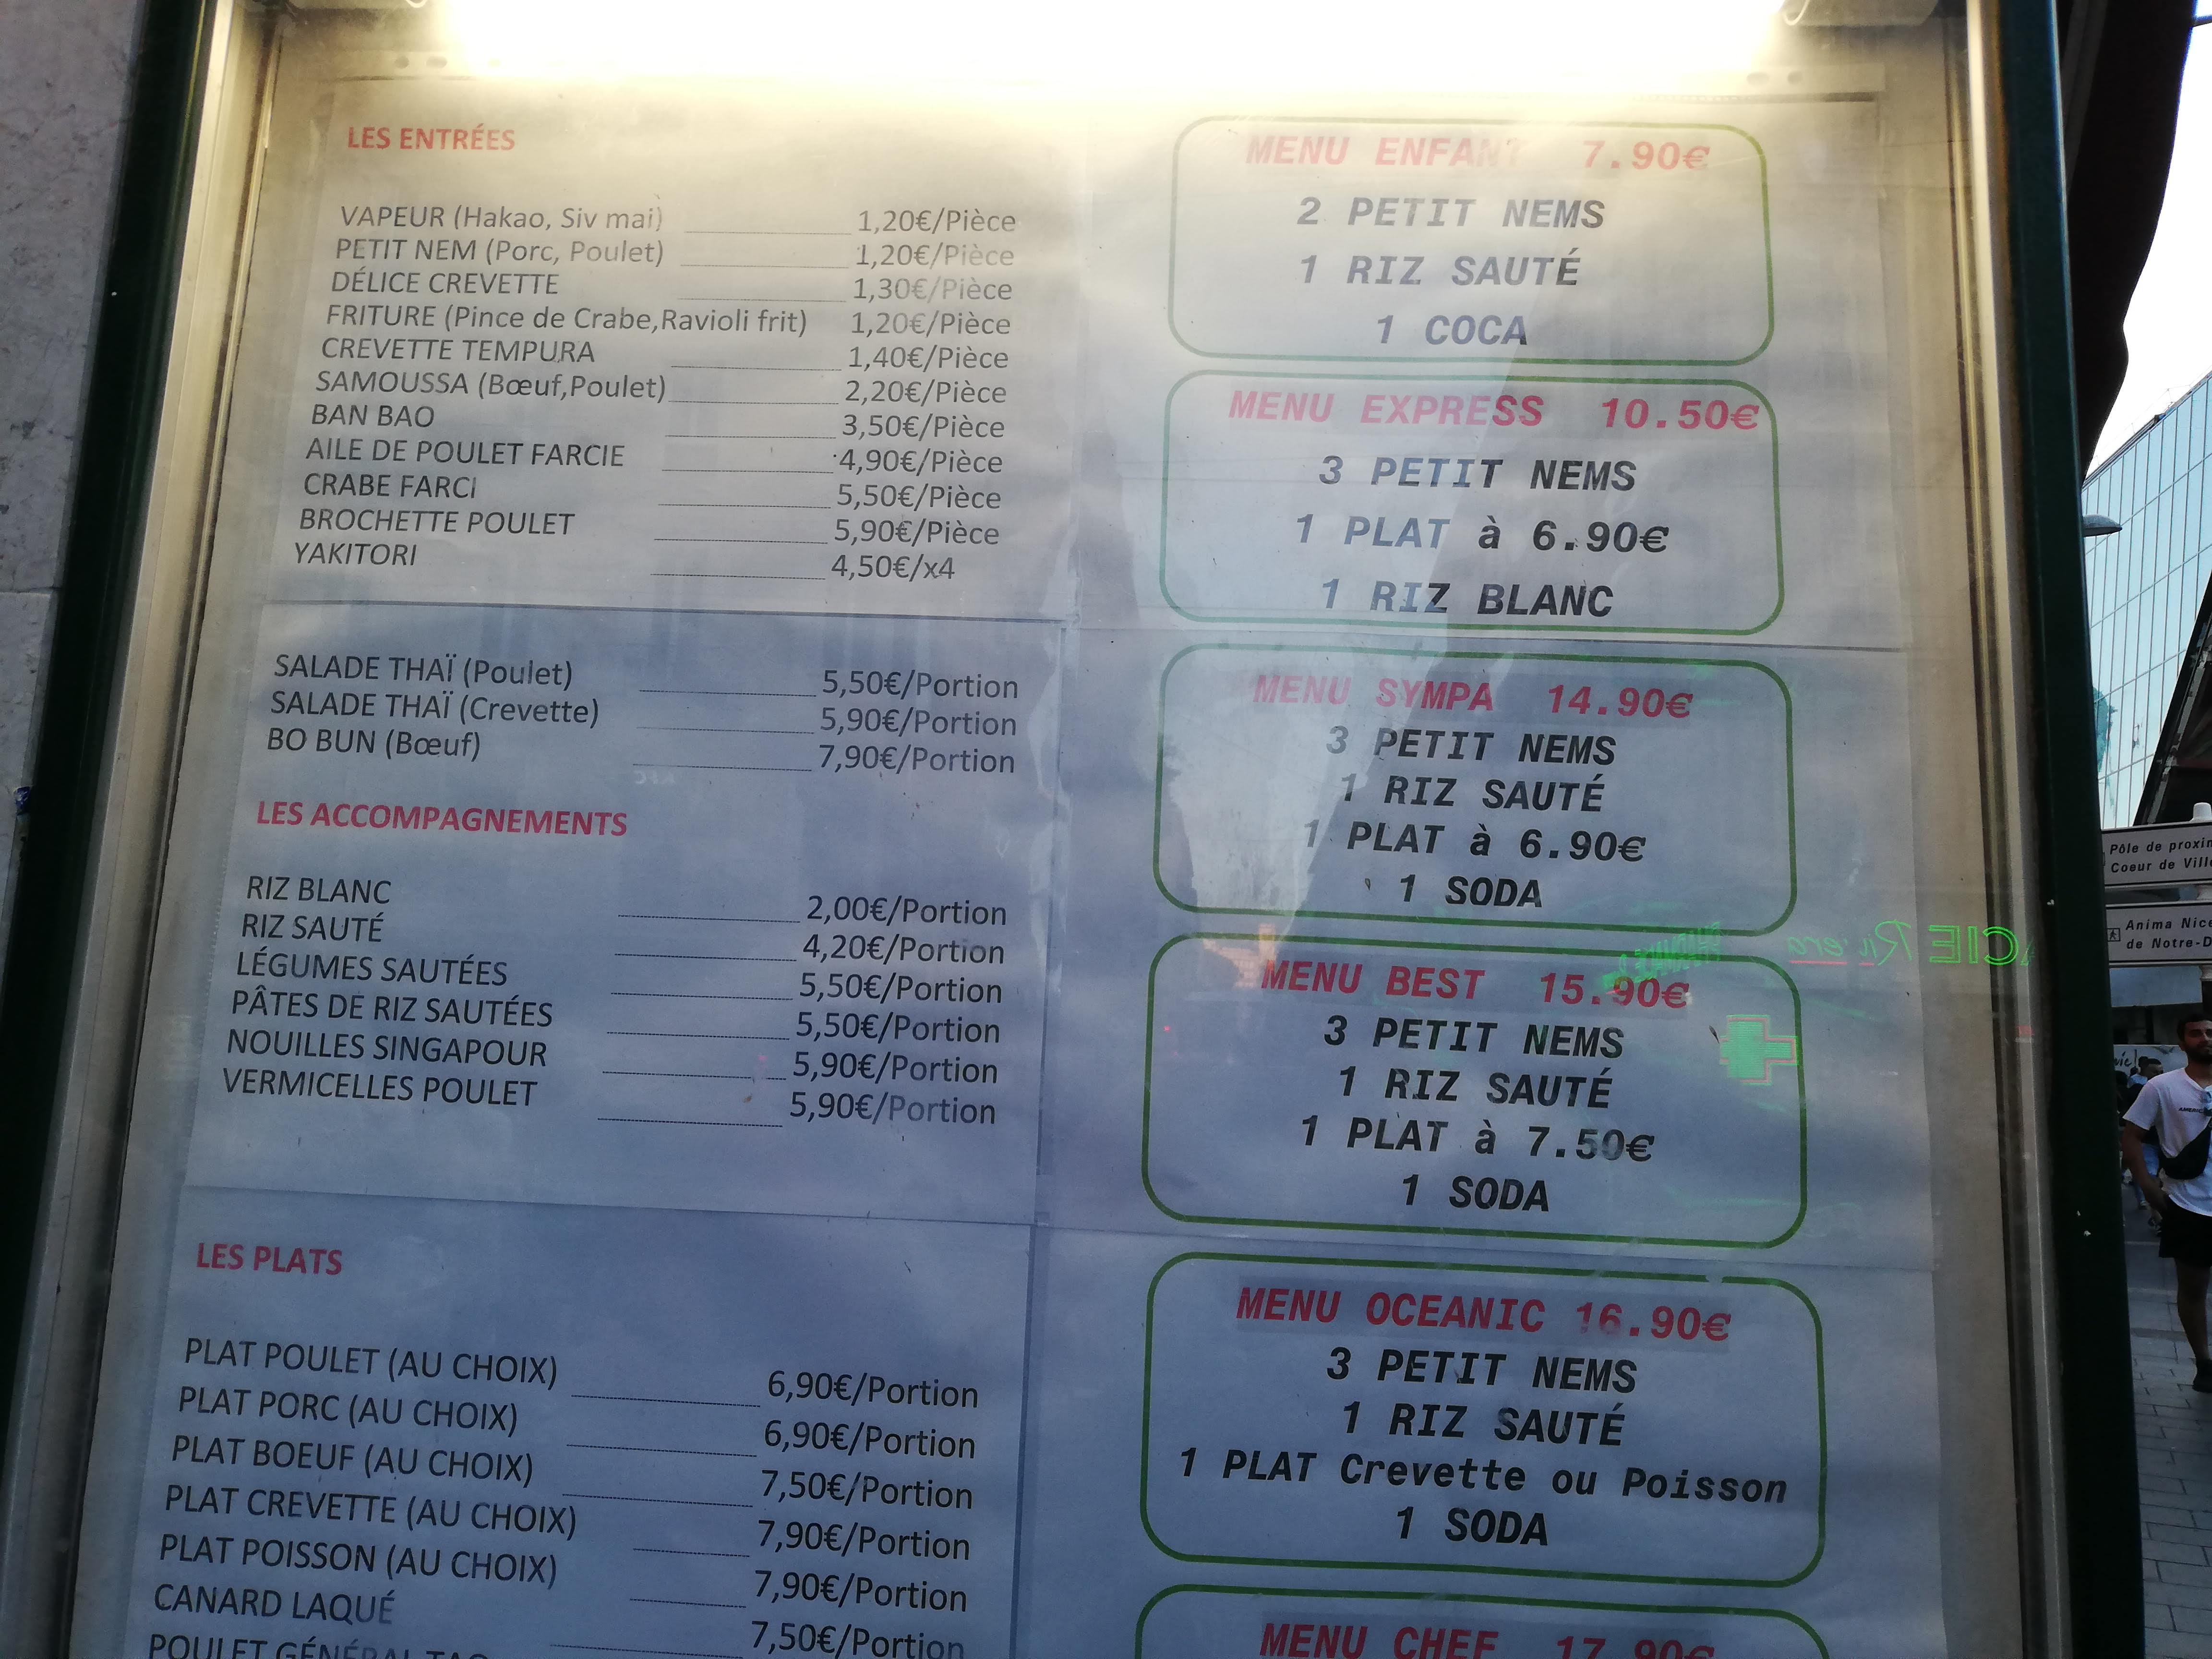 LES ENTRÉES
VAPEUR (Hakao, Siv mai) 1,20€/Pièce
PETIT NEM (Porc, Poulet) 1,20€/Pièce
DÉLICE CREVETTE 1,30€/Pièce
FRITURE (Pince de Crabe,Ravioli frit) 1,20€/Pièce
CREVETTE TEMPURA 1,40€/Pièce
SAMOUSSA (Bœuf,Poulet) 2,20€/Pièce
BAN BAO 3,50€/Pièce
AILE DE POULET FARCIE 4,90€/Pièce
CRABE FARCI 5,50€/Pièce
BROCHETTE POULET 5,90€/Pièce
YAKITORI 4,50€/x4
SALADE THAÏ (Poulet) 5,50€/Portion
SALADE THAÏ (Crevette) 5,90€/Portion
BO BUN (Bœuf) 7,90€/Portion
LES ACCOMPAGNEMENTS
RIZ BLANC 2,00€/Portion
RIZ SAUTÉ 4,20€/Portion
LÉGUMES SAUTÉES 5,50€/Portion
PÂTES DE RIZ SAUTÉES 5,50€/Portion
NOUILLES SINGAPOUR 5,90€/Portion
VERMICELLES POULET 5,90€/Portion
LES PLATS
PLAT POULET (AU CHOIX) 6,90€/Portion
PLAT PORC (AU CHOIX) 6,90€/Portion
PLAT BOEUF (AU CHOIX) 7,50€/Portion
PLAT CREVETTE (AU CHOIX) 7,90€/Portion
PLAT POISSON (AU CHOIX) 7,90€/Portion
CANARD LAQUÉ 7,50€/Portion
POULET GÉNÉRAL TAO
MENU ENFANT 7.90€
2 PETIT NEMS
1 RIZ SAUTÉ
1 COCA
MENU EXPRESS 10.50€
3 PETIT NEMS
1 PLAT à 6.90€
1 RIZ BLANC
MENU SYMPA 14.90€
3 PETIT NEMS
1 RIZ SAUTÉ
1 PLAT à 6.90€
1 SODA
MENU BEST 15.90€
3 PETIT NEMS
1 RIZ SAUTÉ
1 PLAT à 7.50€
1 SODA
MENU OCEANIC 16.90€
3 PETIT NEMS
1 RIZ SAUTÉ
1 PLAT Crevette ou Poisson
1 SODA
MENU CHEF 17.90€
Pôle de proxim
Coeur de Ville
Anima Nice
de Notre-D